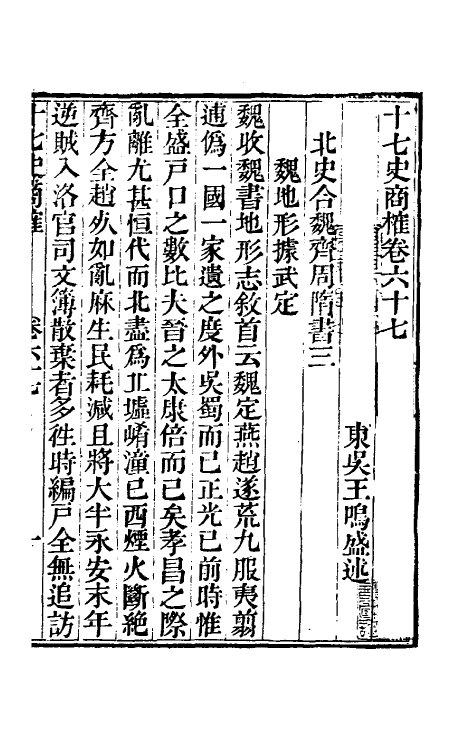 十七史商榷卷六十七
東吳王鳴盛述
北史合魏齊周隋書三
魏地形據武定
魏收魏書地形志敘首云魏定燕趙遂荒九服夷翦
逋僞一國一家遺之度外吳蜀而已正光已前時惟
全盛戶口之數比夫晉之太康倍而已矣孝昌之際
亂離尤甚恒代而北盡爲丘墟崤潼已西煙火斷絕
齊方全趙死如亂麻生民耗減且將大半永安末年
逆賊入洛官司文簿散棄者多徃時編戶全無追訪
十七史商榷 卷六十七 一